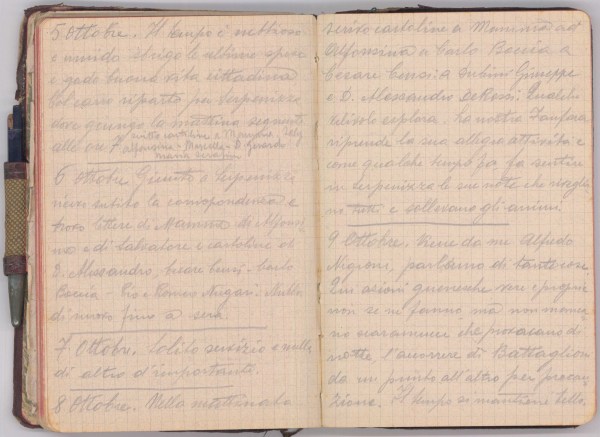 5 Ottobre. Il tempo è
e umido
e godo buona vita cittadina
Col carro riparto per Serpenizza
dove giungo la mattina seguente
alle ore 7
Scritto cartoline a Mammà,
Alfonsina - Marcello - D. Gerardo
Maria
6 Ottobre. Giunto a Serpenizza
ricevo subito la corrispondenza e
trovo lettere di Mammà di Alfonsi
na e di Salvatore e cartoline di
D. Alessandro, Cesare Censi - Carlo
Boccia - Pio e Romeo Nugari. Nulla
di nuovo fino a sera.
7 Ottobre. Solito servizio e nulla
di altro d'importante.
8 Ottobre. Nella mattinata
scrivo cartoline a Mammà ad
Alfonsina a Carlo Boccia a
Cesare Censi a Giuseppe
e D. Alessandro DeRossi. Qualche
velivolo esplora. La nostra Fanfara
riprende la sua allegra attività e
come qualche tempo fa fa sentire
in Serpenizza le sue note che risveglia
no tutti e sollevano gli animi.
9 Ottobre. Viene da me Alfredo
Nigioni, parliamo di tante cose.
Qui azioni guerresche vere e proprie
non se ne fanno ma non manca
no scaramucce che provocano di
notte l'accorrere di Battaglioni
da un punto all'altro per precau
zione. Il tempo si mantiene bello.